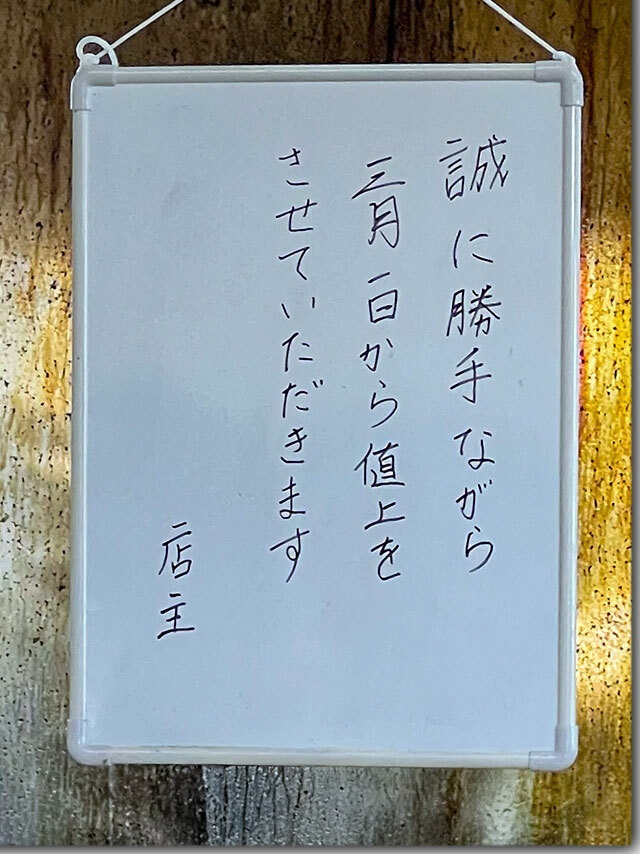 誠に勝手ながら
三月一日から値上を
させていただきます
店主